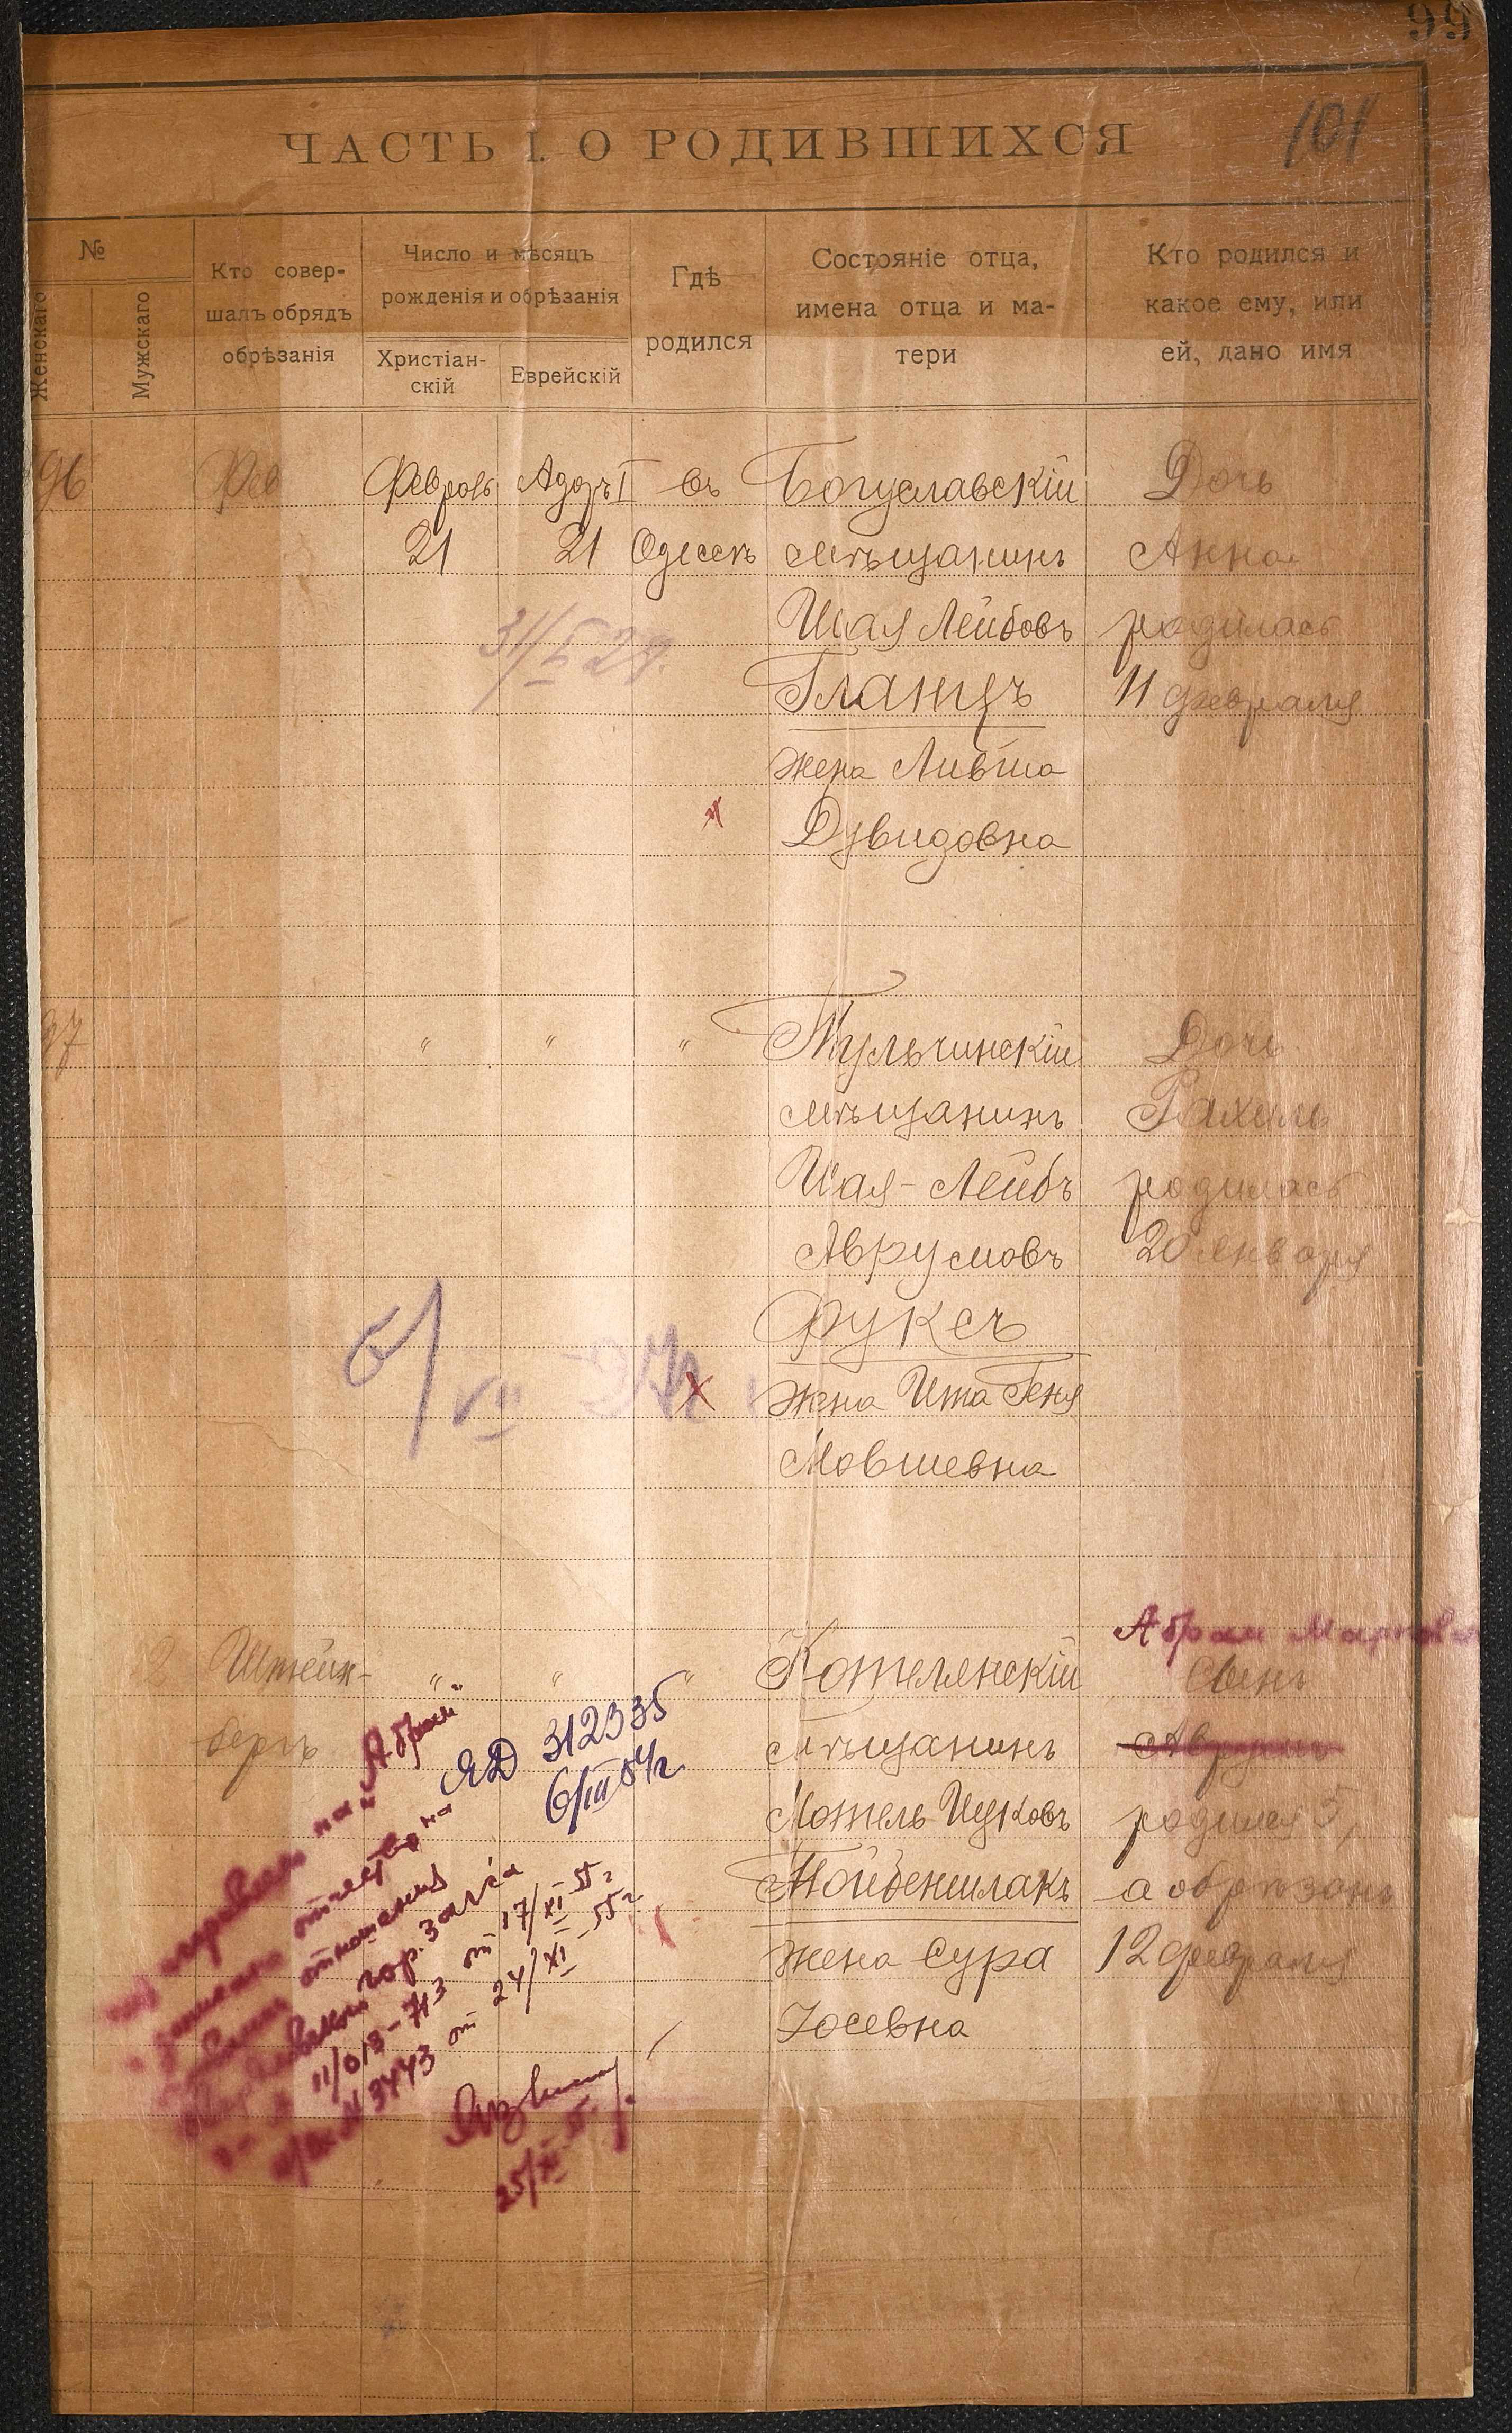 99
101
ЧАСТЬ I. О РОДИВШИХСЯ
№
Женскаго
Мужскаго
Кто совер-
шалъ обрядъ
обрѣзанія
Число и мѣсяцъ
рожденія и обрѣзанія
Христіан-
скій
Еврейскій
Гдѣ
родился
Состояніе отца,
имена отца и ма-
тери
Кто родился и
какое ему, или
ей, дано имя
96
Фев
Февраль
21
Адаръ I
21
въ
Одессѣ
Богуславскій
мѣщанинъ
Шая Лейбовъ
Гланцъ
жена Лившa
Дувидовна
Дочь
Анна
родилась
11 февраля
97
" " "
Тульчинскій
мѣщанинъ
Шая-Лейбъ
Аврумовъ
Фуксъ
жена Ита Геня
Мовшевна
Дочь
Рахиль
родилась
20 января
6/VII
2
Штейн-
бергъ
" " "
Котелянскій
мѣщанинъ
Мотель Ицковъ
Тойбеншлакъ
жена Сура
Іосевна
Абрам Маркович
Сынъ
Аврумъ
родился 5,
а обрѣзанъ
12 февраля
ЯД 312335
6/III 54г
исправлено на "Абрам"
отчество на
отношения
гор. загса
11/018-713 от 17/XI-55г
N 3443 от 24/XI-55г
25/XI-55